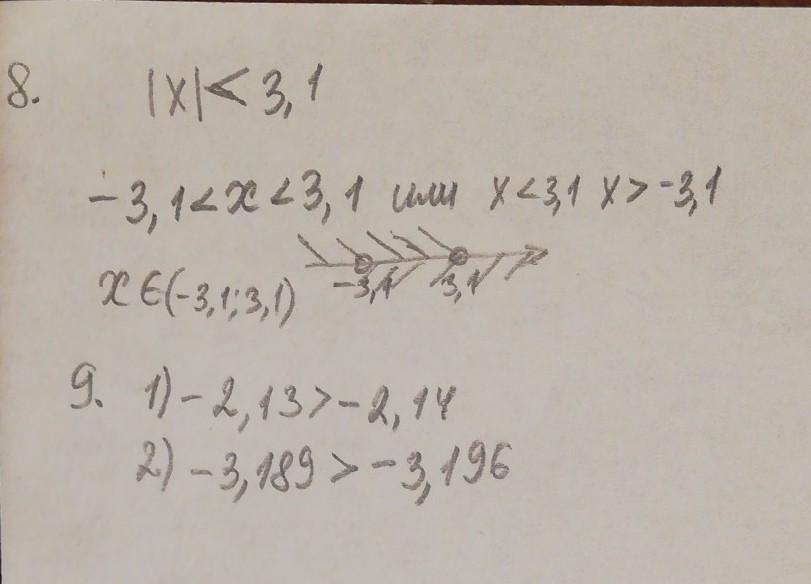 8. |x| < 3,1
-3,1 < x < 3,1 или x < 3,1 x > -3,1
x ∈ (-3,1; 3,1) -3,1 3,1
9. 1) -2,13 > -2,14
2) -3,189 > -3,196